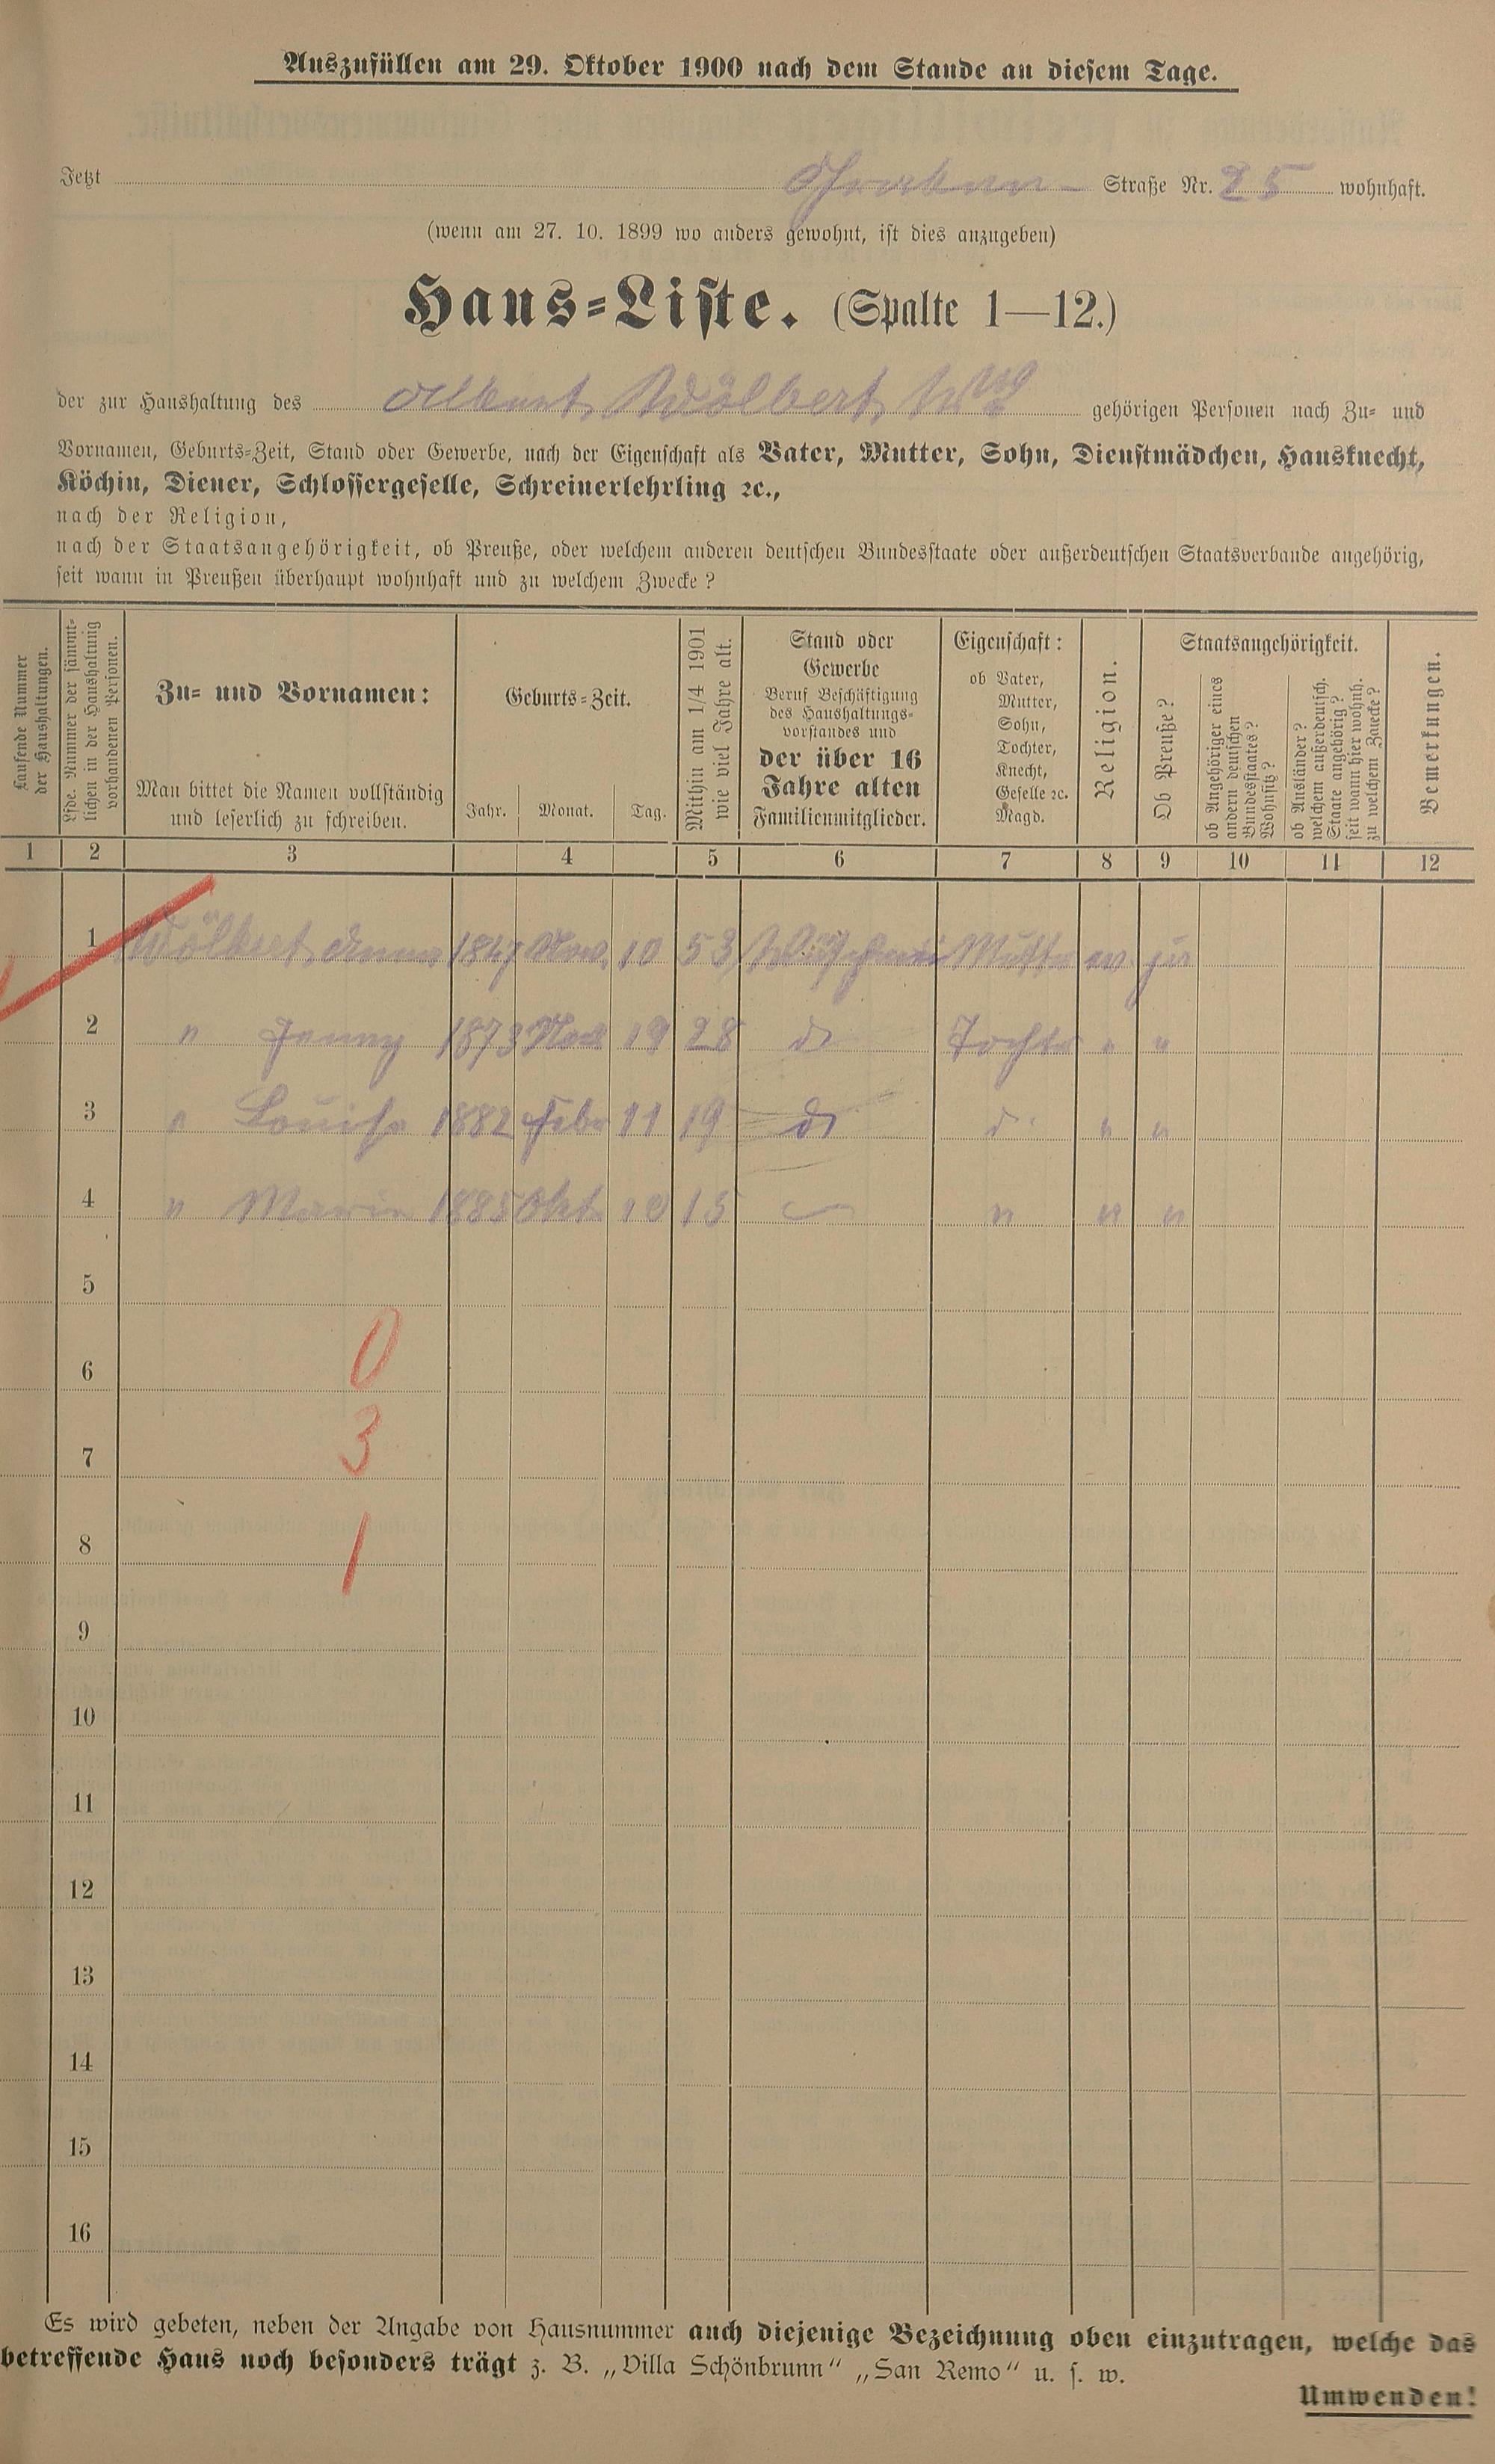 Auszufüllen am 29. Oktober 1900 nach dem Stande an diesem Tage.
Jetzt Straße Nr. 25 wohnhaft.
(wenn am 27. 10. 1899 wo anders gewohnt, ist dies anzugeben)
Haus-Liste. (Spalte 1—12.)
der zur Haushaltung des Albert Wölbert Wwe gehörigen Personen nach Zu- und
Vornamen, Geburts-Zeit, Stand oder Gewerbe, nach der Eigenschaft als Vater, Mutter, Sohn, Dienstmädchen, Hausknecht,
Köchin, Diener, Schlossergeselle, Schreinerlehrling ꝛc.,
nach der Religion,
nach der Staatsangehörigkeit, ob Preuße, oder welchem anderen deutschen Bundesstaate oder außerdeutschen Staatsverbande angehörig,
seit wann in Preußen überhaupt wohnhaft und zu welchem Zwecke?
Laufende Nummer
der Haushaltungen.
Lfde. Nummer der sämmt-
lichen in der Haushaltung
vorhandenen Personen.
Zu- und Vornamen:
Man bittet die Namen vollständig
und leserlich zu schreiben.
Geburts-Zeit.
Jahr. Monat. Tag.
Mithin am 1/4 1901
wie viel Jahre alt.
Stand oder
Gewerbe
Beruf Beschäftigung
des Haushaltungs-
vorstandes und
der über 16
Jahre alten
Familienmitglieder.
Eigenschaft:
ob Vater,
Mutter,
Sohn,
Tochter,
Knecht,
Geselle ꝛc.
Magd.
Religion.
Staatsangehörigkeit.
Ob Preuße?
ob Angehöriger eines
andern deutschen
Bundesstaates?
Wohnsitz?
ob Ausländer?
welchem außerdeutsch.
Staate angehörig?
seit wann hier wohnh.
zu welchem Zwecke?
Bemerkungen.
1 2 3 4 5 6 7 8 9 10 11 12
1 Wölbert Anna 1847 Nov. 10 53 Mutter ev. ja
2 " Jenny 1873 19 28 do Tochter " "
3 " Louise 1882 Febr 11 19 do do " "
4 " Marie 1885 Okt. 10 15 — " " "
5
6 0
7 3
8 1
9
10
11
12
13
14
15
16
Es wird gebeten, neben der Angabe von Hausnummer auch diejenige Bezeichnung oben einzutragen, welche das
betreffende Haus noch besonders trägt z. B. „Villa Schönbrunn“ „San Remo“ u. s. w.
Umwenden!